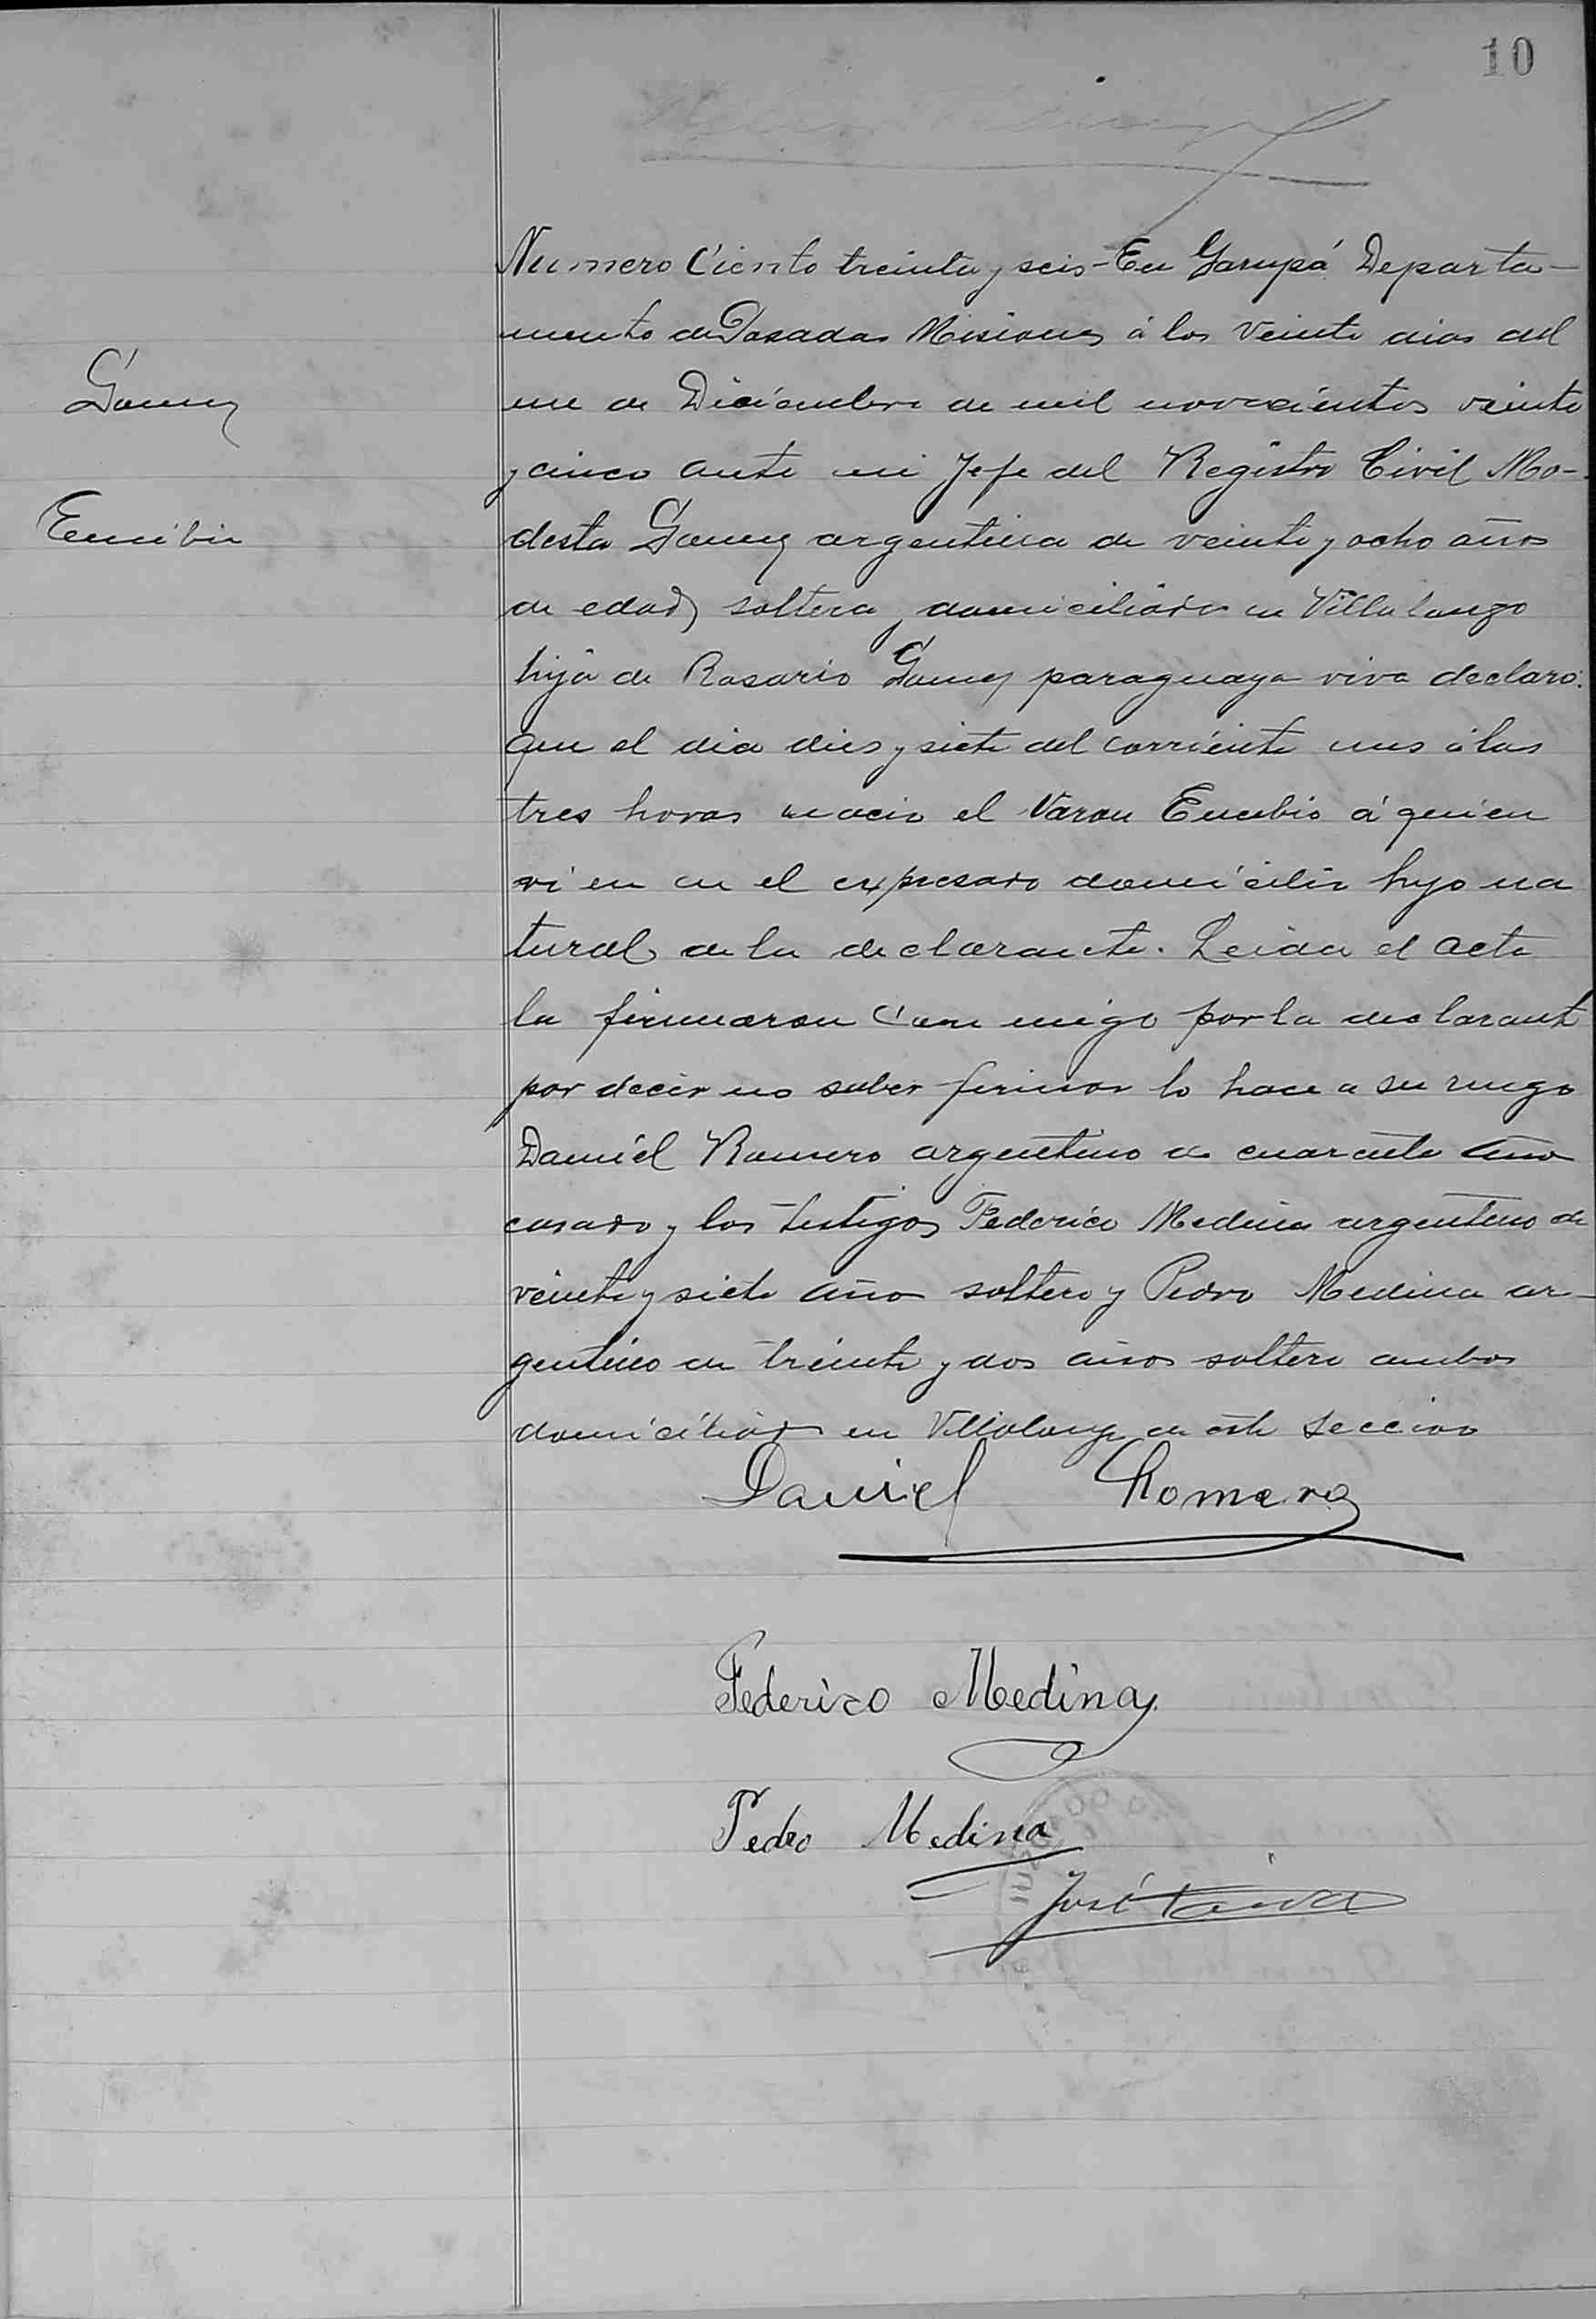 10
Numero Ciento treinta y seis - En Garupá Departa-
mento de Posadas Misiones á los veinte dias del
Gomez
mes de Diciembre de mil novecientos veinte
y cinco ante mi Jefe del Registro Civil Mo-
Eusebio
desta Gomez argentina de veinte y ocho años
de edad, soltera, domiciliada en Villalonga
hija de Rosario Gomez paraguaya viva declaro:
que el dia dies y siete del corriente mes á las
tres horas nacio el Varon Eusebio á quien
vi en en el expresado domicilio hijo na
tural de la declarante. Leida el acta
la firmaron con migo por la declarante
por decir no saber firmar lo hace a su ruego
Daniel Romero argentino de cuarenta años
casado y los testigos Federico Medina argentino de
veinte y siete años soltero y Pedro Medina ar-
gentino de treinta y dos años soltero ambos
domiciliados en Villalonga de esta seccion
Daniel Romero
Federico Medina
Pedro Medina
José